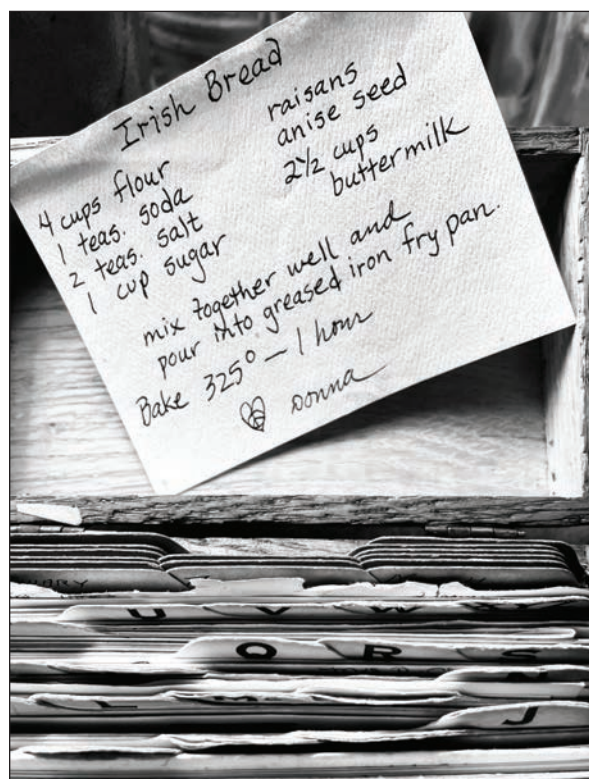 Irish Bread
4 cups flour
1 teas. soda
2 teas. salt
1 cup sugar
raisans
anise seed
2½ cups
buttermilk
mix together well and
pour into greased iron fry pan.
Bake 325° — 1 hour
Donna
U V W
Q R S
L M
J